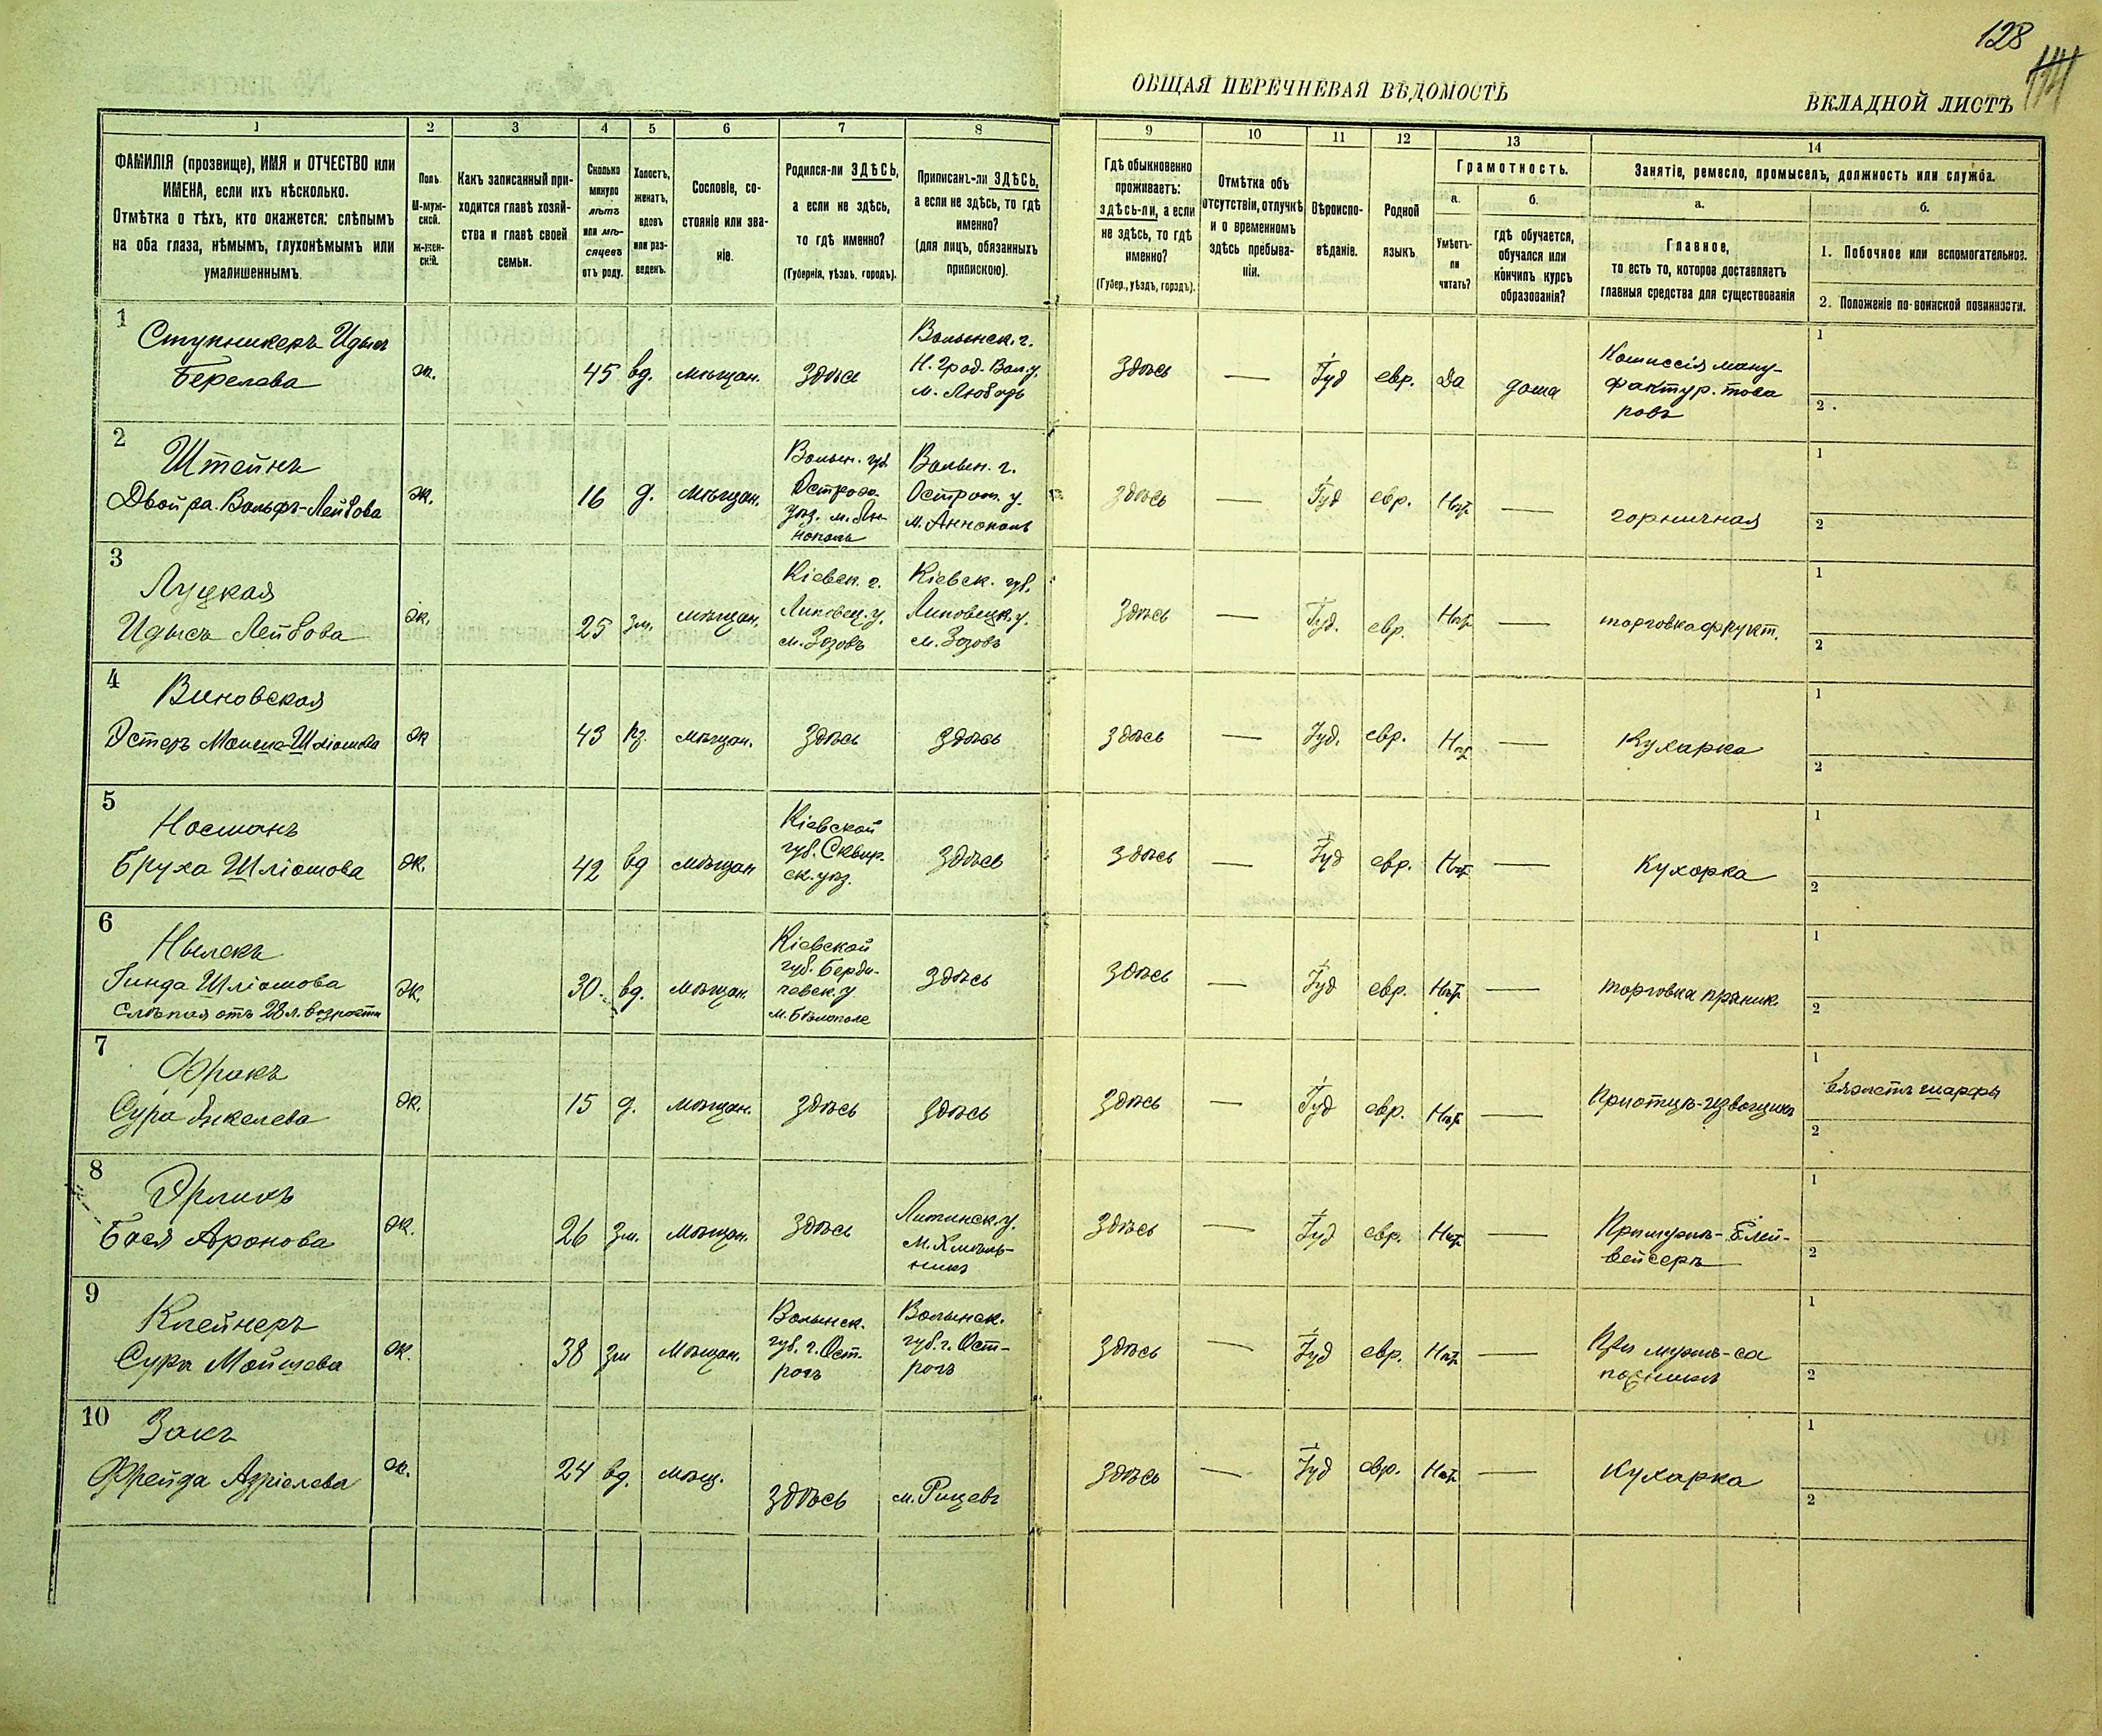 128
ОБЩАЯ ПЕРЕЧНЕВАЯ ВѢДОМОСТЬ
ВКЛАДНОЙ ЛИСТЪ
1 2 3 4 5 6 7 8 9 10 11 12 13 14
ФАМИЛІЯ (прозвище), ИМЯ и ОТЧЕСТВО или
ИМЕНА, если ихъ нѣсколько.
Отмѣтка о тѣхъ, кто окажется: слѣпымъ
на оба глаза, нѣмымъ, глухонѣмымъ или
умалишеннымъ.
Полъ.
М-муж-
ской.
ж-жен-
скій.
Какъ записанный при-
ходится главѣ хозяй-
ства и главѣ своей
семьи.
Сколько
минуло
лѣтъ
или мѣ-
сяцевъ
отъ роду.
Холостъ,
женатъ,
вдовъ
или раз-
веденъ.
Сословіе, со-
стояніе или зва-
ніе.
Родился-ли ЗДѢСЬ,
а если не здѣсь,
то гдѣ именно?
(Губернія, уѣздъ, городъ).
Приписанъ-ли ЗДѢСЬ,
а если не здѣсь, то гдѣ
именно?
(для лицъ, обязанныхъ
припискою).
Гдѣ обыкновенно
проживаетъ:
здѣсь-ли, а если
не здѣсь, то гдѣ
именно?
(Губер., уѣздъ, городъ).
Отмѣтка объ
отсутствіи, отлучкѣ
и о временномъ
здѣсь пребыва-
ніи.
Вѣроиспо-
вѣданіе.
Родной
языкъ.
Грамотность.
а.
Умѣетъ-
ли
читать?
б.
гдѣ обучается,
обучался или
кончилъ курсъ
образованія?
Занятіе, ремесло, промыселъ, должность или служба.
а.
Главное,
то есть то, которое доставляетъ
главныя средства для существованія
б.
1. Побочное или вспомогательное.
2. Положеніе по воинской повинности.
1
Ступникеръ Идысъ
Берелева
ж.
45
вд.
мѣщан.
Здѣсь
Волынск. г.
Н. Град-Вол. у.
м. Любарь
Здѣсь
—
Іуд
евр.
Да
дома
Комиссія ману-
фактур. това
ровъ
1
2
2
Штейнъ
Двойра Вольфъ-Лейбова
ж.
16
д.
мѣщан.
Волын. губ
Острож.
уѣз. м. Ан-
нополь
Волын. г.
Острож. у.
м. Аннополь
здѣсь
—
Іуд
евр.
Нѣтъ
—
горничная
1
2
3
Луцкая
Идысъ Лейбова
ж.
25
зм.
мѣщан.
Кіевск. г.
Липовец. у.
м. Зозовъ
Кіевск. губ.
Липовецк. у.
м. Зозовъ
Здѣсь
—
Іуд.
евр.
Нѣтъ
—
торговка фрукт.
1
2
4
Виновская
Эстеръ Мошка-Шліомова
ж
43
рз.
мѣщан.
Здѣсь
Здѣсь
здѣсь
—
Іуд.
евр.
Нѣтъ
—
Кухарка
1
2
5
Носманъ
Бруха Шліомова
ж.
42
вд
мѣщан
Кіевской
губ. Сквир-
ск. уѣз.
Здѣсь
здѣсь
—
Іуд
евр.
Нѣтъ
—
Кухарка
1
2
6
Гинда Шліомова
Слѣпая отъ 28 л. возраста
ж.
30
вд.
мѣщан.
Кіевской
губ. Берди-
чевск. у
м. Бѣлополе
Здѣсь
Здѣсь
—
Іуд
евр.
Нѣтъ
—
торговка пряник.
1
2
7
Фракъ
Сура Янкелева
ж.
15
д.
мѣщан.
Здѣсь
Здѣсь
Здѣсь
—
Іуд
евр.
Нѣтъ
—
При отцѣ-извощикѣ
1
вяжетъ шарфы
2
8
Эрлихъ
Бася Аронова
ж.
26
зм.
мѣщан.
Здѣсь
Литинск. у.
м. Хмѣль-
никъ
Здѣсь
—
Іуд
евр.
Нѣтъ
—
При мужѣ-
вейсеръ
1
2
9
Клейнеръ
Сура Мойшева
ж.
38
зм
Мѣщан.
Волынск.
губ. г. Ост-
рогъ
Волынск.
губ. г. Ост-
рогъ
Здѣсь
—
Іуд
евр.
Нѣтъ
—
При мужѣ-са
пожникѣ
1
2
10
Закъ
Фрейда Азріелева
ж.
24
вд.
мѣщ.
Здѣсь
Здѣсь
—
Іуд
евр.
Нѣтъ
—
Кухарка
1
2